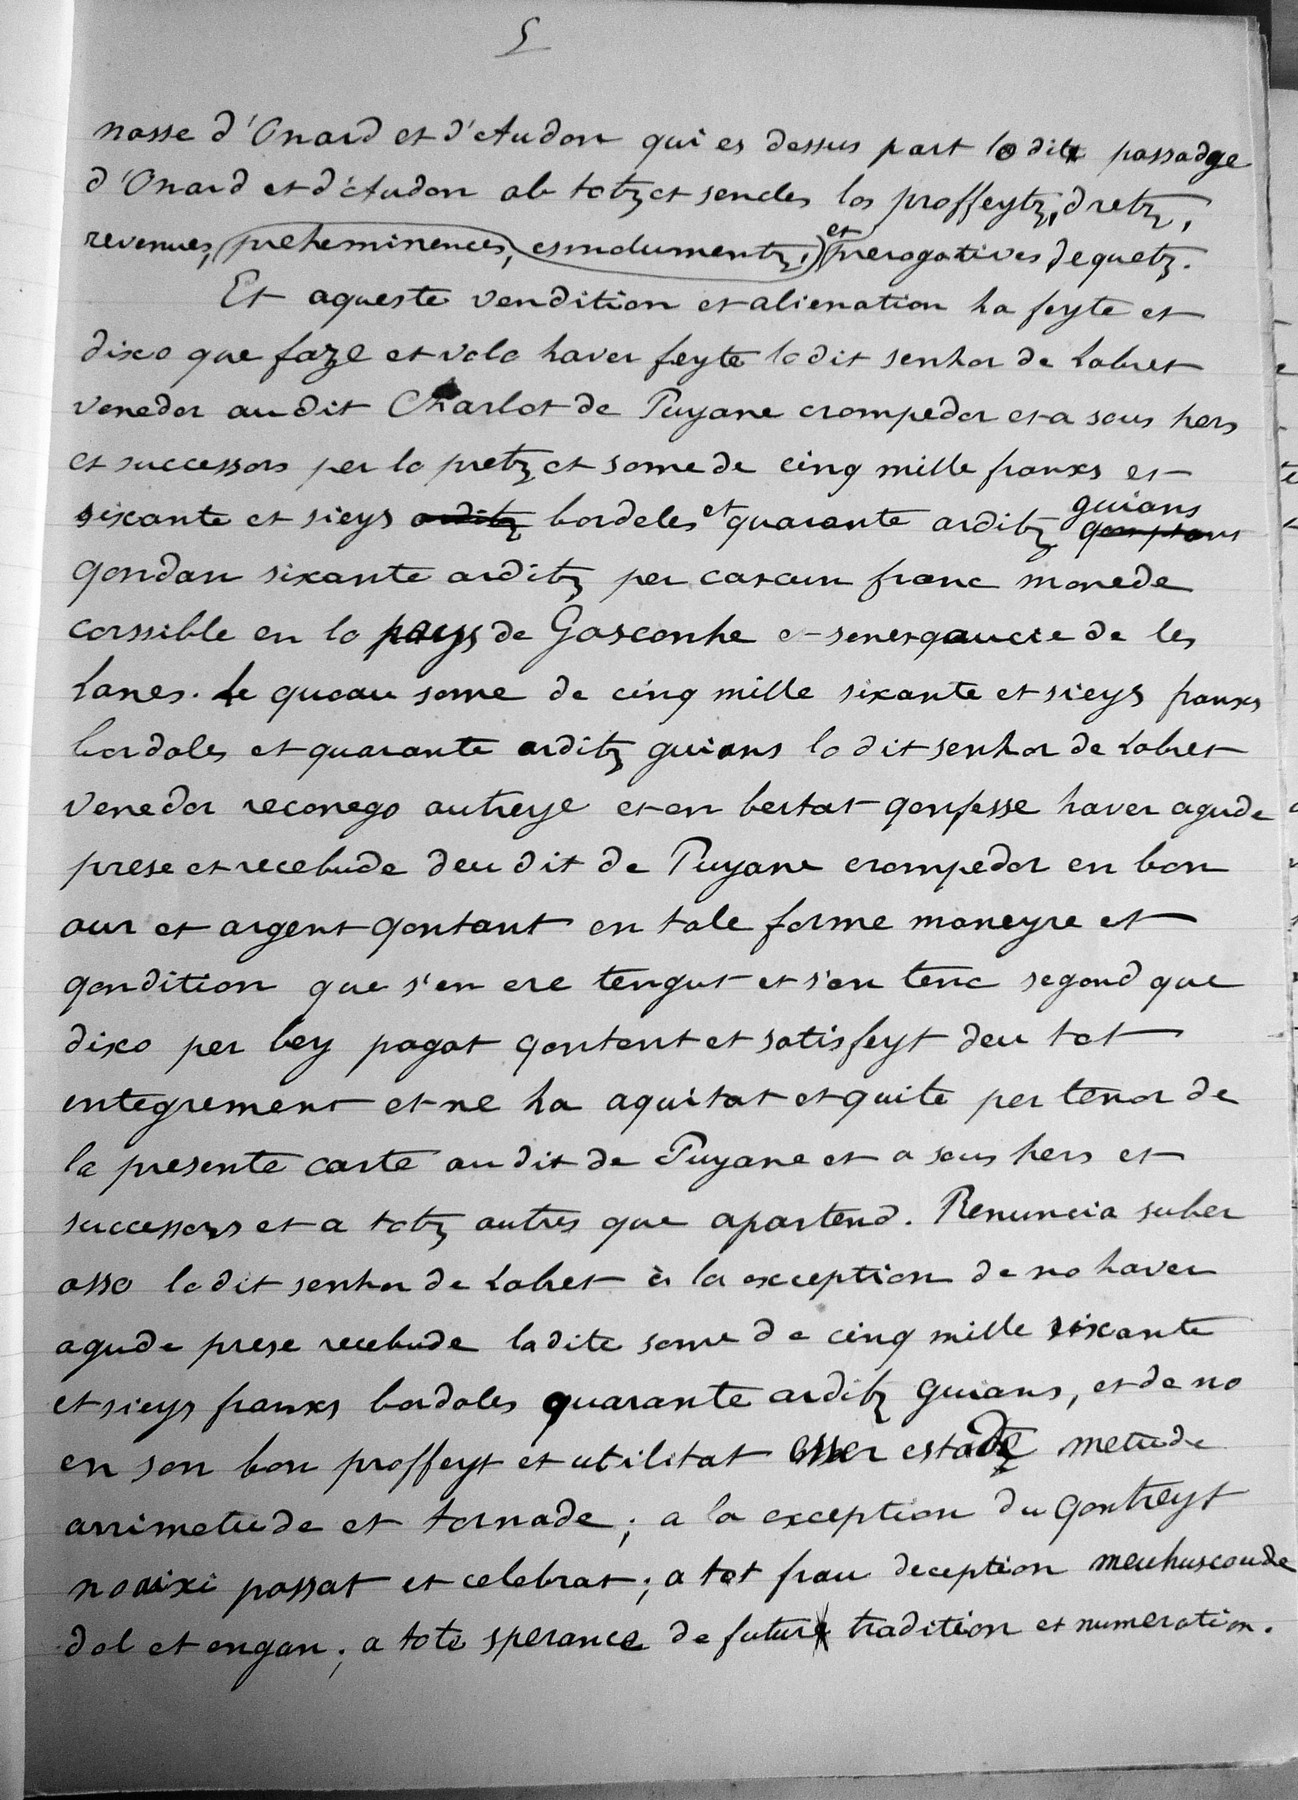 5
nasse d'Onard et d'Audon qui es dessus part lo dit passadge
d'Onard et d'Audon ab totz et sencles los proffeytz, dretz,
revenues, preheminences, esmolumentz, et prerogatives dequetz.
Et aqueste vendition et alienation ha feyte et
dixo que faze et volo haver feyte lodit senhor de Labret
venedor audit Charlot de Puyane crompedor et a sous hers
et successors per lo pretz et some de cinq mille franxs et
sixante et sieys arditz bordeles et quarante arditz guians
qondan sixante arditz per cascun franc monede
corssible en lo pays de Gasconhe et senesqaucie de les
Lanes. Le queau some de cinq mille sixante et sieys franxs
bordales et quarante arditz guians lo dit senhor de Labret
venedor reconego autreye et en bertat qonfesse haver agude
prese et recebude deu dit de Puyane crompedor en bon
aur et argent qontant en tale forme maneyre et
qondition que s'en ere tengut et s'en tenc segond que
dixo per bey pagat qontent et satisfeyt deu tot
entegrement et ne ha aquitat et quite per tenor de
la presente carte au dit de Puyane et a sous hers et
successors et a totz autres que apartend. Renuncia suber
asso lo dit senhor de Labret à la exception de no haver
agude prese recebude ladite some de cinq mille sixante
et sieys franxs bordales quarante arditz guians, et de no
en son bon proffeyt et utilitat esser estade metude
arrimetude et tornade; a la exception du qontreyt
no aixi passat et celebrat; a tot frau deception
dol et engan; a tote sperance de future tradition et numeration.